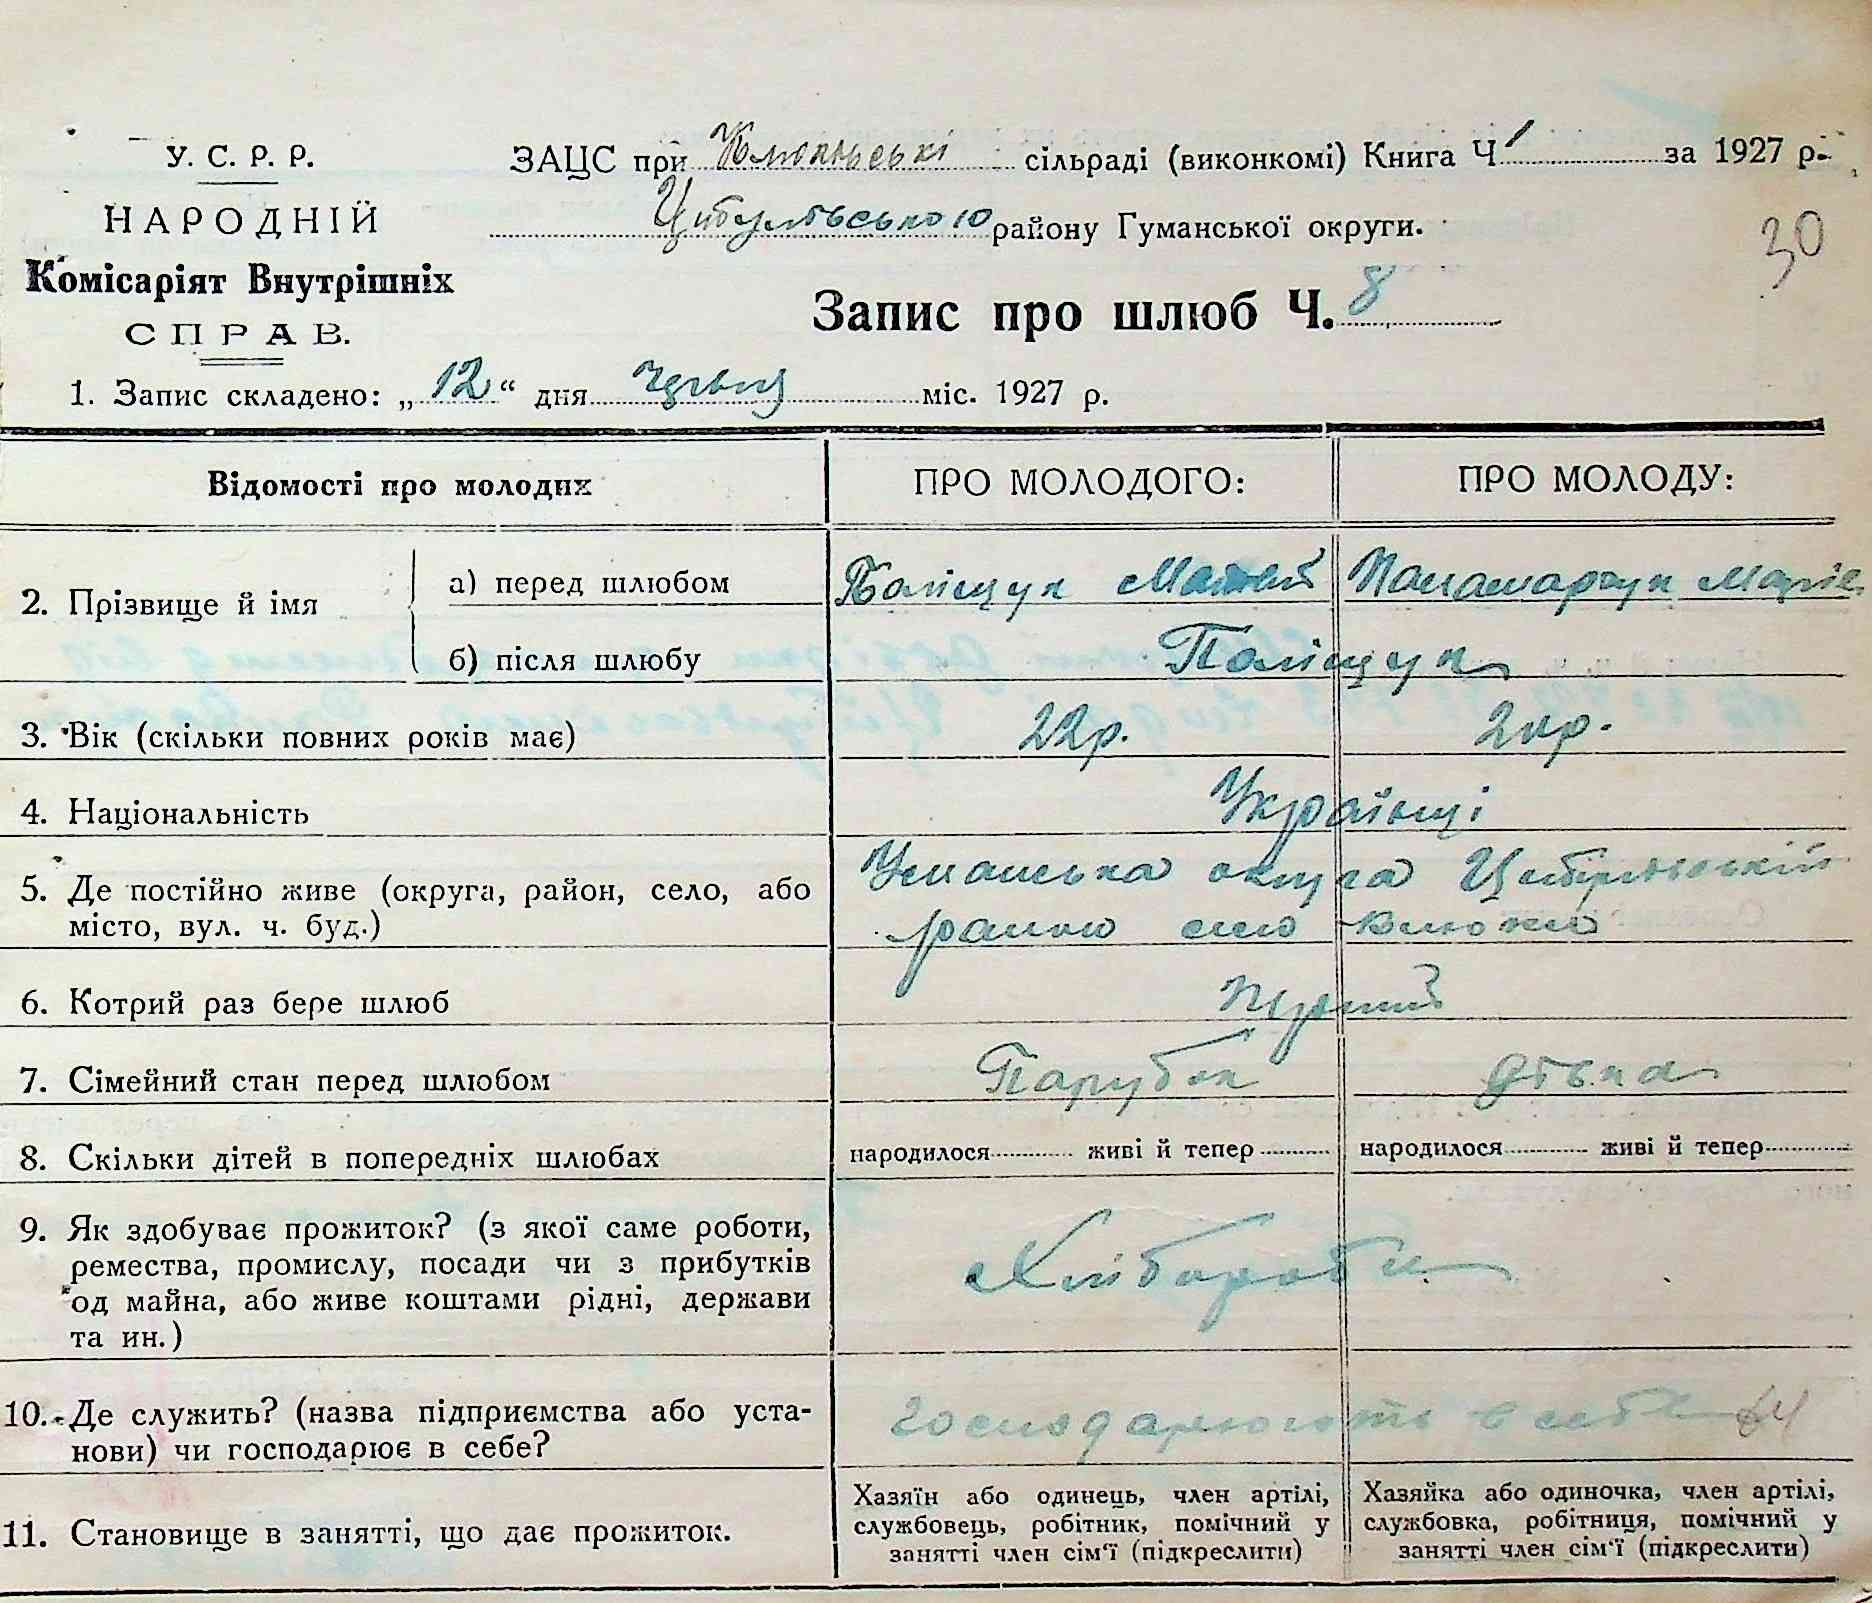 У. С. Р. Р.
НАРОДНІЙ
Комісаріят Внутрішніх
СПРАВ.
ЗАЦС при Клюківські сільраді (виконкомі) Книга Ч 1 за 1927 р.
Цибулівського району Гуманської округи.
30
Запис про шлюб Ч. 8
1. Запис складено: „12“ дня міс. 1927 р.
Відомості про молодих
ПРО МОЛОДОГО:
ПРО МОЛОДУ:
2. Прізвище й імя
а) перед шлюбом
Поліщук Матвій
Панамарчук Марія
б) після шлюбу
Поліщук
3. Вік (скільки повних років має)
22р.
20р.
4. Національність
Українці
5. Де постійно живе (округа, район, село, або
місто, вул. ч. буд.)
Уманська округа
район село
6. Котрий раз бере шлюб
Перший
7. Сімейний стан перед шлюбом
Парубок
дівка
8. Скільки дітей в попередніх шлюбах
народилося живі й тепер
народилося живі й тепер
9. Як здобуває прожиток? (з якої саме роботи,
ремества, промислу, посади чи з прибутків
од майна, або живе коштами рідні, держави
та ин.)
Хлібороби
10. Де служить? (назва підприємства або уста-
нови) чи господарює в себе?
господарюють в себе
11. Становище в занятті, що дає прожиток.
Хазяїн або одинець, член артілі,
службовець, робітник, помічний у
занятті член сім'ї (підкреслити)
Хазяйка або одиночка, член артілі,
службовка, робітниця, помічний у
занятті член сім'ї (підкреслити)